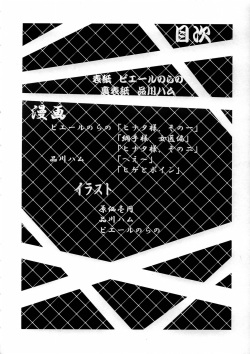 目次
表紙 ピエールのらの
裏表紙 品川ハム
漫画
ピエールのらの「ヒナタ様、その一」
「綱手様、女医偏」
「ヒナタ様、その二」
品川ハム「へえ〜」
「ヒゲとボイン」
イラスト
原価壱円
品川ハム
ピエールのらの